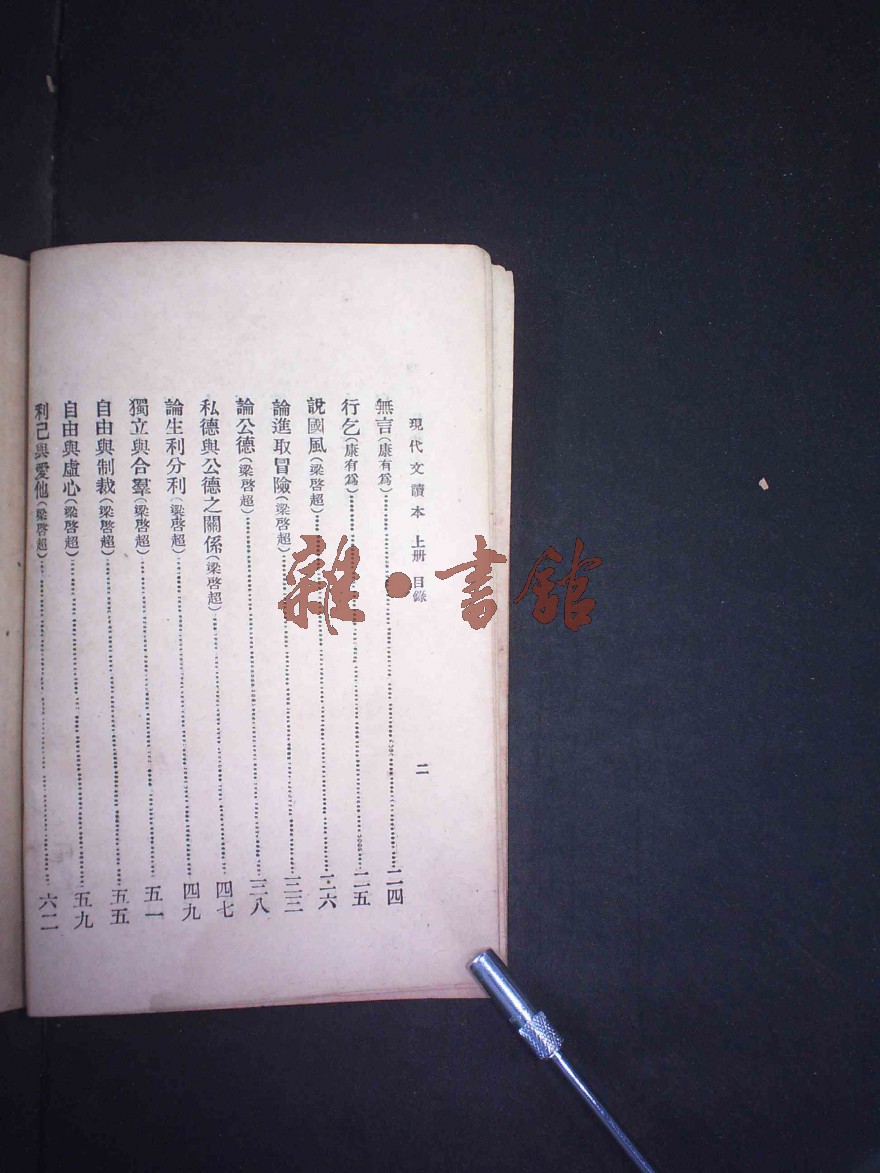 現代文讀本 上册 目錄 二
無言(康有爲)…………二四
行乞(康有爲)…………二五
說國風(梁啓超)…………二六
論進取冒險(梁啓超)…………三三
論公德(梁啓超)…………三八
私德與公德之關係(梁啓超)…………四七
論生利分利(梁啓超)…………四九
獨立與合羣(梁啓超)…………五一
自由與制裁(梁啓超)…………五五
自由與虛心(梁啓超)…………五九
利己與愛他(梁啓超)…………六二
雜·書館